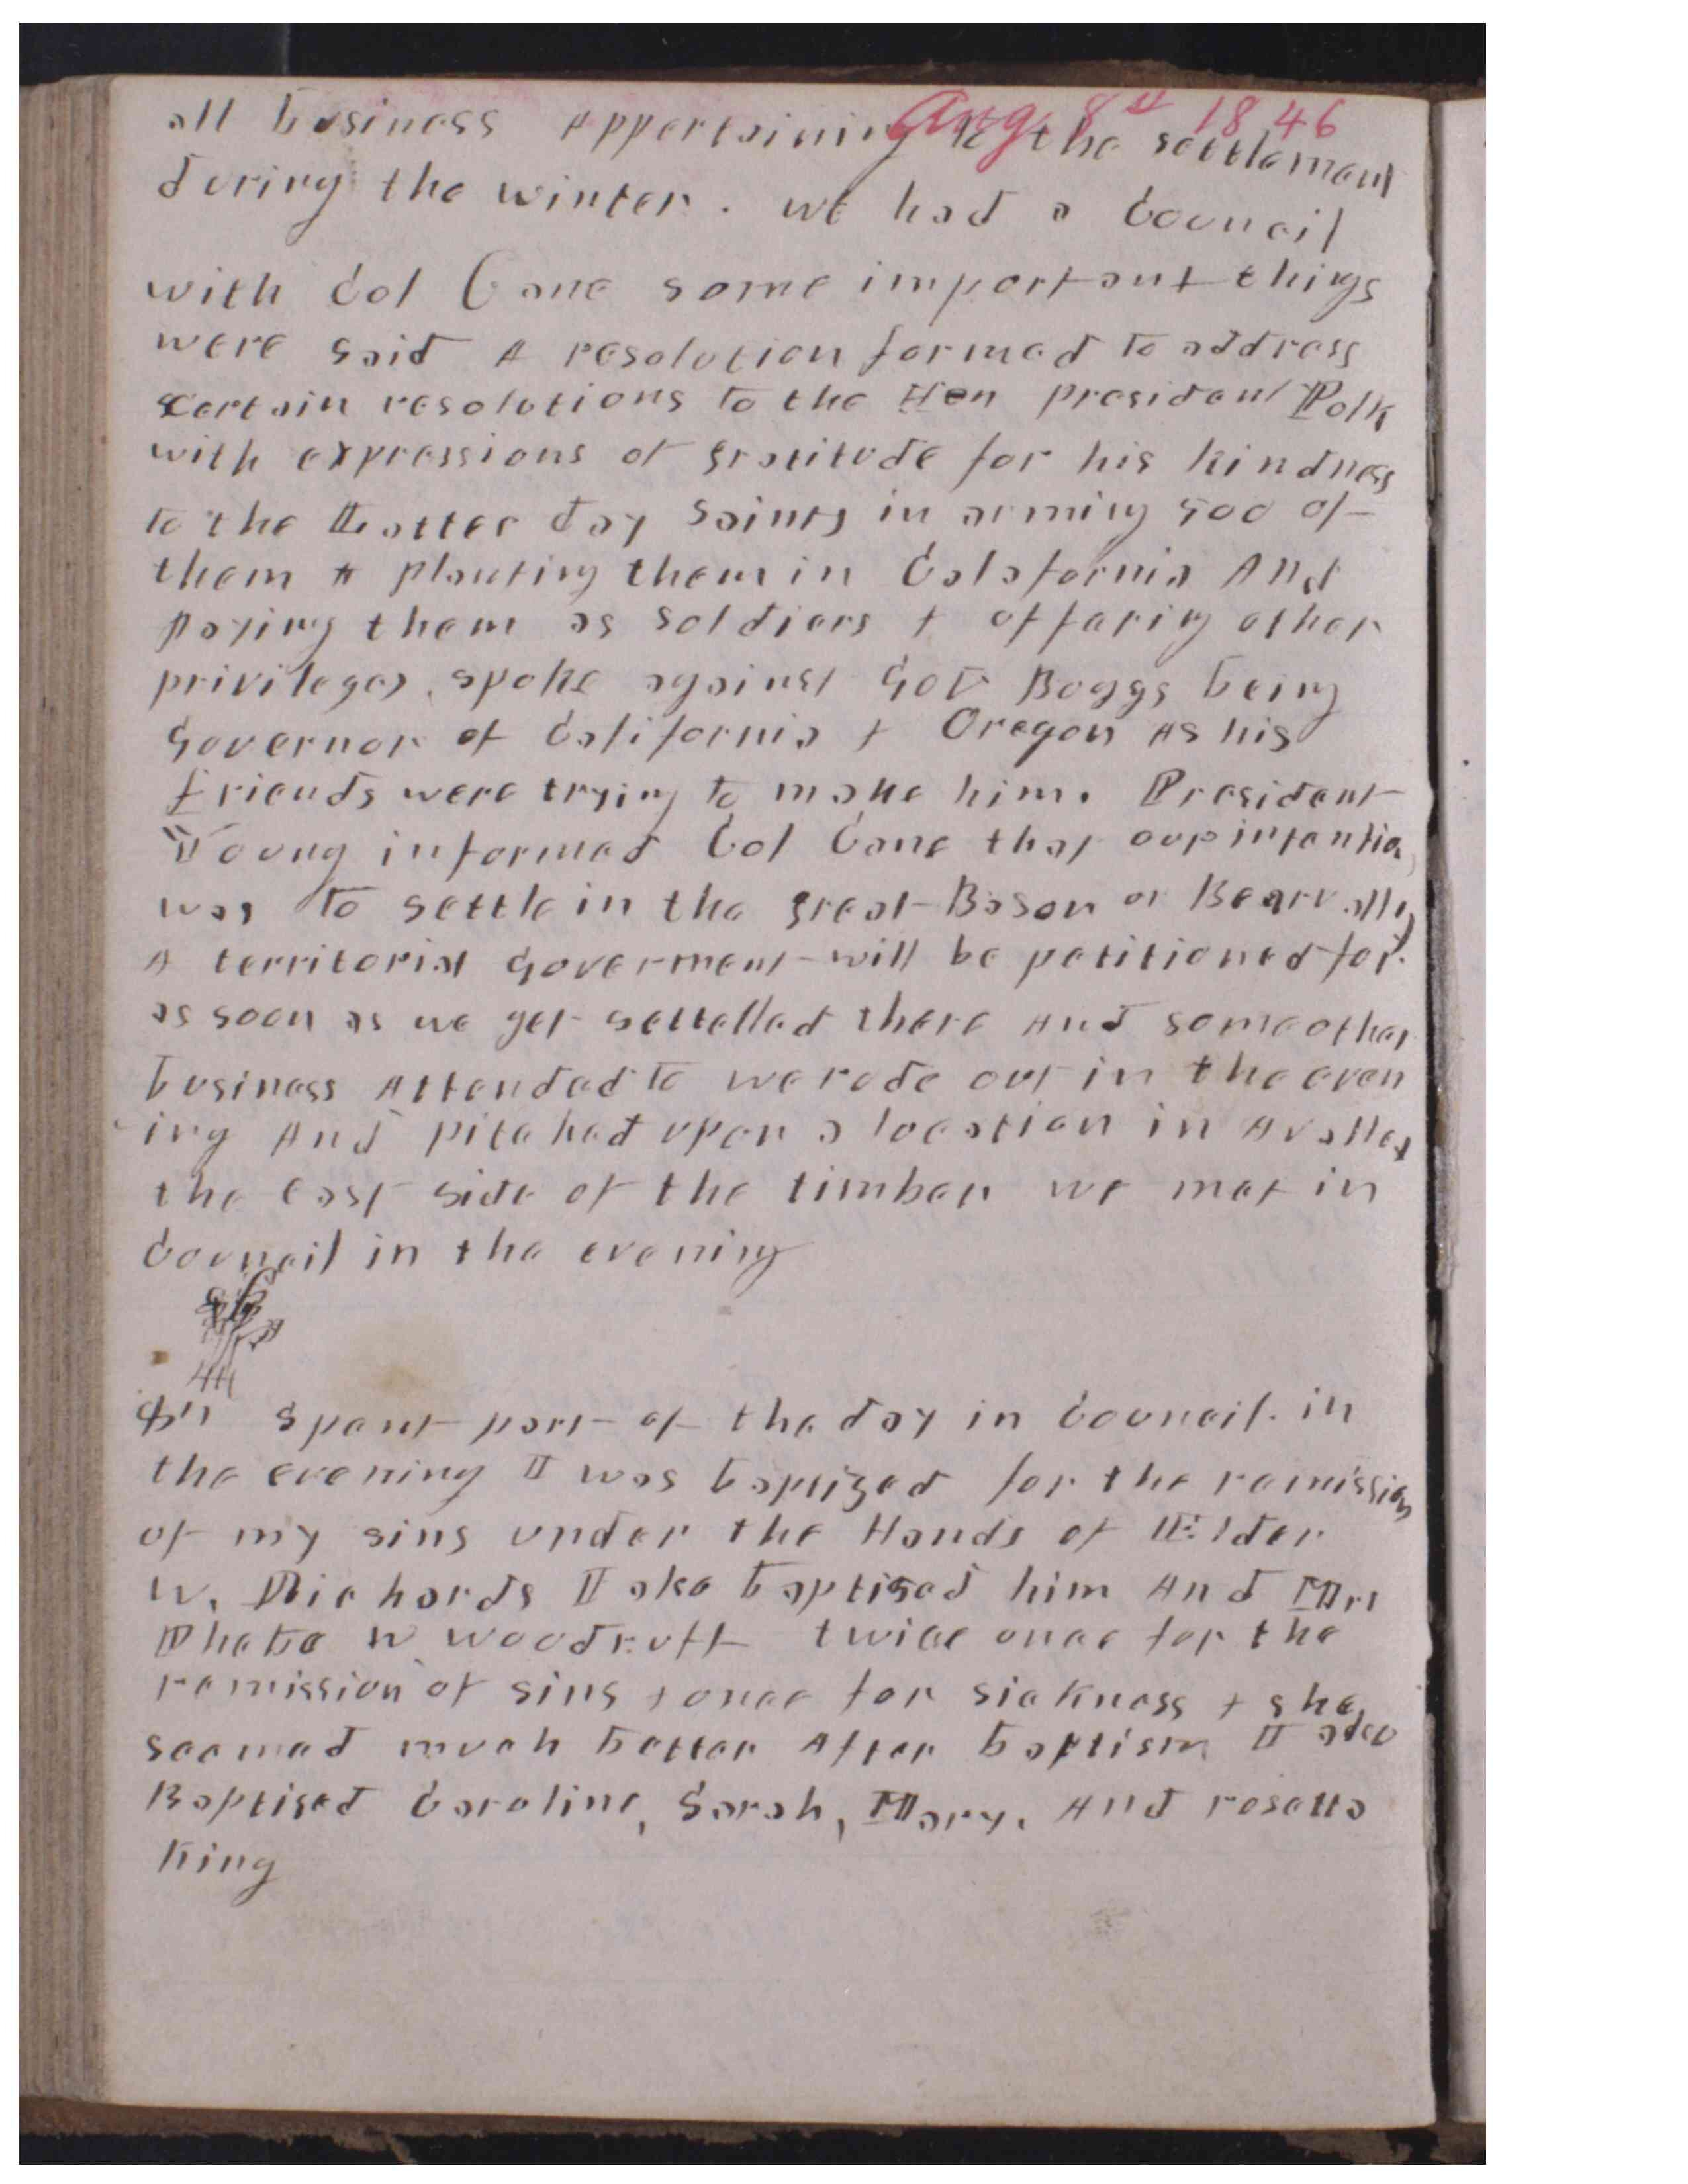 Aug 8th 1846
all business appertaining to the settlement
during the winter. we had a Council
with Col Cane some important things
were said A resolution formed to address
certain resolutions to the Hon president Polk
with expressions of gratitude for his kindness
to the Latter day Saints in arming 500 of
them & planting them in Calafornia And
paying them as soldiers & offering other
privileges. spoke against Gov Boggs being
Governor of California & Oregon as his
friends were trying to make him. President
Young informed Col Cane that our intention
was to settle in the great Bason or Bear vally
A territorial Goverment will be petitioned for.
as soon as we get settelled there And some other
business Attended to we rode out in the even
ing And pitched upon a location in A valley
the east side of the timber we met in
Council in the evening
spent part of the day in Council. in
the evening I was baptized for the remission
of my sins under the Hands of Elder
W. Richards I also baptised him And Mrs
Phebe W Woodruff twice once for the
remission of sins & once for sickness & she
seemed much better After baptism I also
Baptised Caroline, Sarah, Mary. And rosetta
King